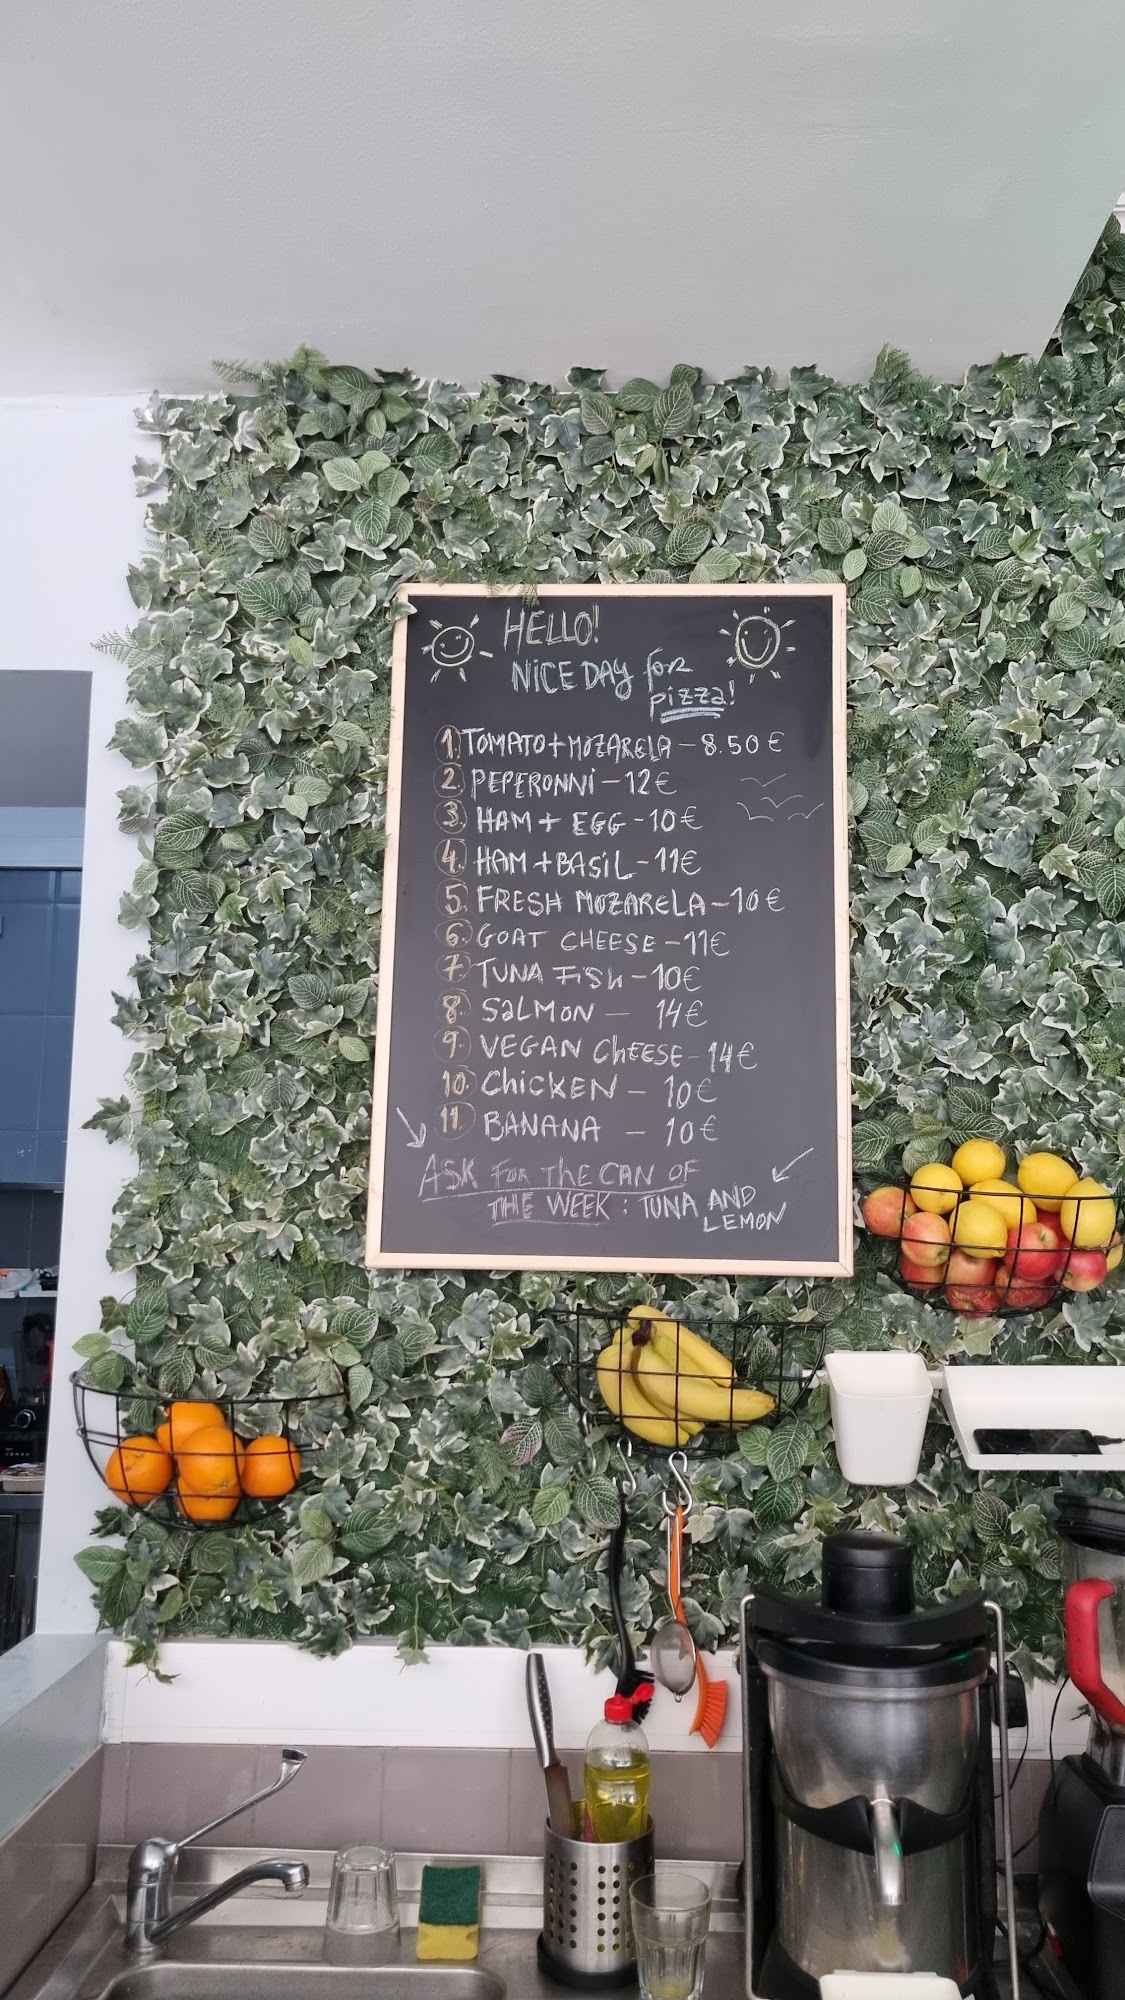 HELLO!
NiCE DAY for
pizza!
1. TOMATO+MOZARELA – 8.50 €
2. PEPERONNi – 12€
3. HAM + EGG - 10€
4. HAM + BASiL - 11€
5. FRESH MOZARELA – 10€
6. GOAT CHEESE - 11€
7. TUNA Fish - 10€
8. SaLMON – 14€
9. VEGAN ChEESE - 14€
10. ChiCKEN – 10€
11. BANANA – 10€
ASK FoR The CAN OF
THE WEEK : TUNA AND
LEMON